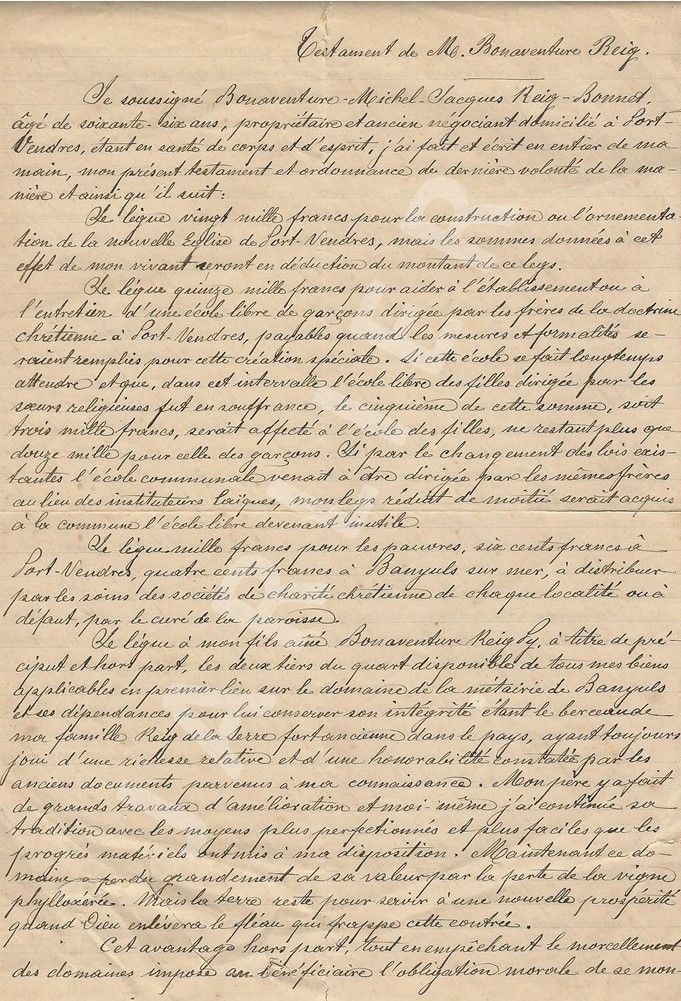 Testament de M. Bonaventure Reig.
Je soussigné Bonaventure-Michel-Jacques Reig-Bonnet,
âgé de soixante-six ans, propriétaire et ancien négociant domicilié à Port-
Vendres, étant en santé de corps et d'esprit, j'ai fait et écrit en entier de ma
main, mon présent testament et ordonnance de dernière volonté de la ma-
nière et ainsi qu'il suit:
Je lègue vingt mille francs pour la construction ou l'ornementa-
tion de la nouvelle Eglise de Port-Vendres, mais les sommes données à cet
effet de mon vivant seront en déduction du montant de ce legs.
Je lègue quinze mille francs pour aider à l'établissement ou à
l'entretien d'une école libre de garçons dirigée par les frères de la doctrine
chrétienne à Port-Vendres, payables quand les mesures et formalités se-
raient remplies pour cette création spéciale. Si cette école se fait longtemps
attendre et que, dans cet intervalle l'école libre des filles dirigée par les
sœurs religieuses fut en souffrance, le cinquième de cette somme, soit
trois mille francs, serait affecté à l'école des filles, ne restant plus que
douze mille pour celle des garçons. Si par le changement des lois exis-
tantes l'école communale venait à être dirigée par les mêmes frères
au lieu des instituteurs laïques, mon legs réduit de moitié serait acquis
à la commune l'école libre devenant inutile.
Je lègue mille francs pour les pauvres, six cents francs à
Port-Vendres, quatre cents francs à Banyuls sur mer, à distribuer
par les soins des sociétés de charité chrétienne de chaque localité ou à
défaut, par le curé de la paroisse.
Je lègue à mon fils aîné Bonaventure Reig Py, à titre de pré-
ciput et hors part, les deux tiers du quart disponible de tous mes biens
applicables en premier lieu sur le domaine de la métairie de Banyuls
et ses dépendances pour lui conserver son intégrité étant le berceau de
ma famille Reig de la Serre fort ancienne dans le pays, ayant toujours
joui d'une richesse relative et d'une honorabilité constatée par les
anciens documents parvenus à ma connaissance. Mon père y a fait
de grands travaux d'amélioration et moi-même j'ai continué sa
tradition avec les moyens plus perfectionnés et plus faciles que les
progrès matériels ont mis à ma disposition. Maintenant ce do-
maine a perdu grandement de sa valeur par la perte de la vigne
phylloxérée. Mais la terre reste pour servir à une nouvelle prospérité
quand Dieu enlèvera le fléau qui frappe cette contrée.
Cet avantage hors part, tout en empêchant le morcellement
des domaines impose au bénéficiaire l'obligation morale de se mon-